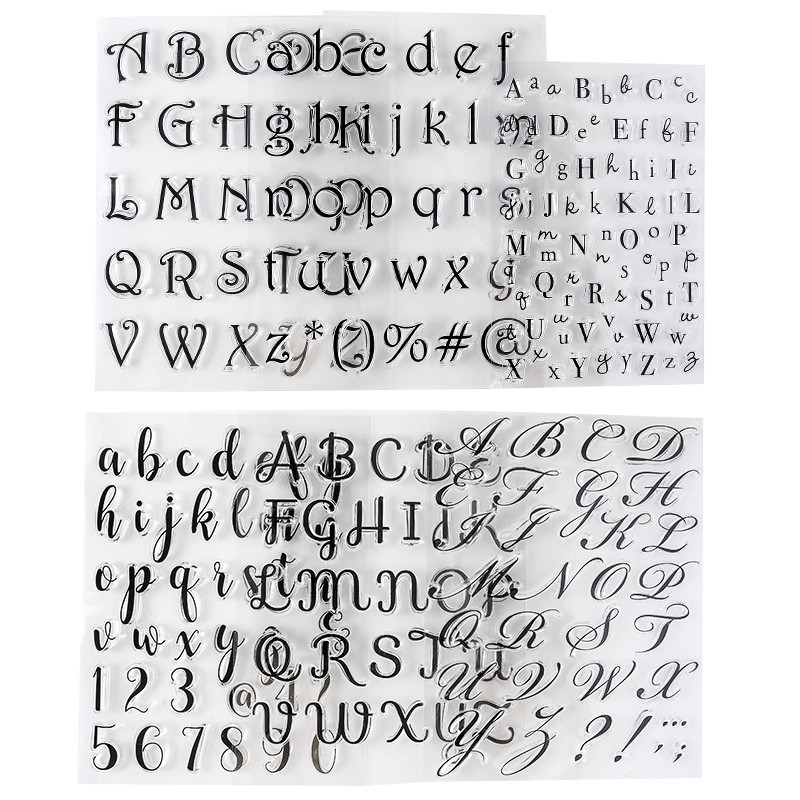 A B C a b c d e f
F G H g h i j k l m
L M N n o p q r s
Q R S t T u U v w x y
V W X z * ( ) % # @
A a a B b b C c c
d d D e e E f f F
G g g H h h i I i
j j J k k K l l L
M m m N n n O o o P
q q Q r r R s s S t T p p
t U u u V v v W w w
X x x Y y y Z z z
a b c d
h i j k l
o p q r s
v w x y
1 2 3 @
5 6 7 8 9 0
A B C D
F G H I J K
L M N O P
Q R S T U
V W X Y Z
A B C D
E F G H
I J K L
M N O P
Q R S T
U V W X
Y Z ? ! ; ;